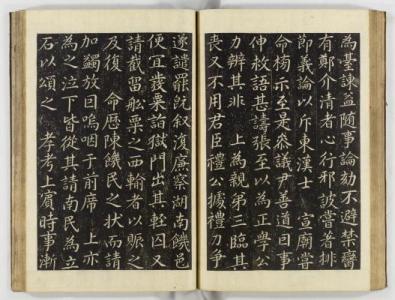 為臺諫益隨事論劾不避禁臠
有鄭介清者心行邪詖嘗著排
節義論以斥東漢士 宣廟嘗
命榜示至是叅議尹善道因事
伸救語甚譸張至以為正學公
力辨其非 上為親第三臨其
喪又不用君臣禮公據禮力爭
遂譴罷旣叙復廉察湖南饑邑
便宜發粟詣獄門出其輕囚又
請截留船粟之西輸者以賑之
及復 命歷陳饑民之状而請
加蠲放因嗚咽于前席 上亦
為之泣下皆從其請南民為立
石以頌之 孝考上賓時事漸